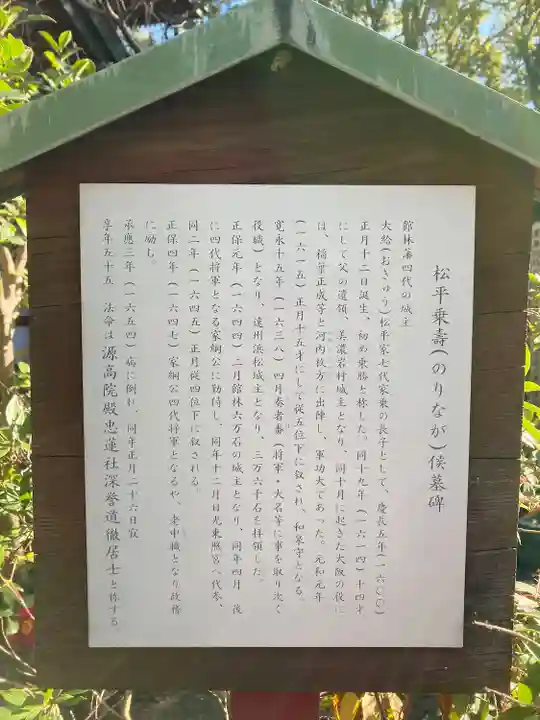 松平乗壽(のりなが)侯墓碑
館林藩四代の城主
大給(おぎゅう)松平家七代家乗の長子として、慶長五年(一六〇〇)
正月十二日誕生、初め乗勝と称した。同十九年(一六一四)十四才
にして父の遺領、美濃岩村城主となり、同十月に起きた大阪の役に
は、稲葉正成等と河内枚方に出陣し、軍功大であった。元和元年
(一六一五)正月十五才にして従五位下に叙され、和泉守となる。
寛永十五年(一六三八)四月奏者番(将軍・大名等に事を取り次ぐ
役職)となり、遠州浜松城主となり、三万六千石を拝領した。
正保元年(一六四四)二月館林六万石の城主となり、同年四月 後
に四代将軍となる家綱公に勤侍し、同年十二月日光東照宮へ代参、
同二年(一六四五)正月従四位下に叙される。
正保四年(一六四七)家綱公四代将軍となるや、老中職となり政務
に励し。
承應三年(一六五四)病に倒れ、同年正月二十六日寂
享年五十五 法命は源高院殿忠蓮社深誉道徹居士と称する。